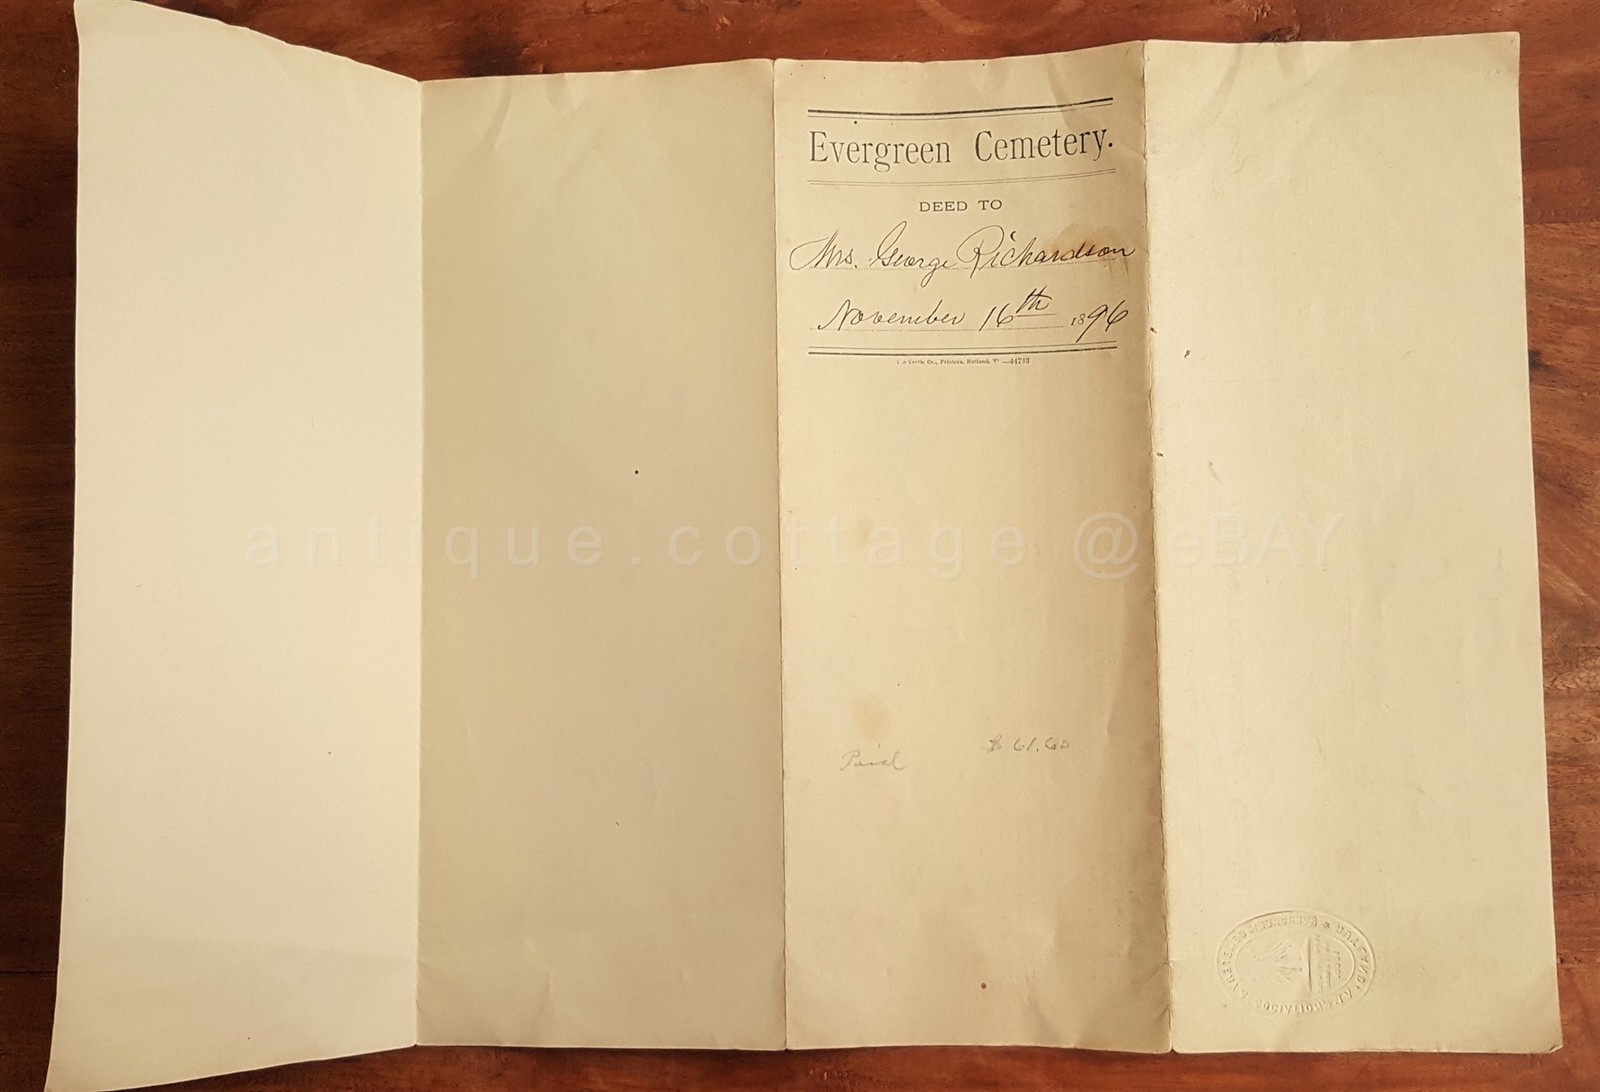 Evergreen Cemetery.
DEED TO
Mrs. George Richardson
November 16th 1896
Co., Printers, Rutland, Vt.—44783
antique.cottage@eBAY
Paid $61.60